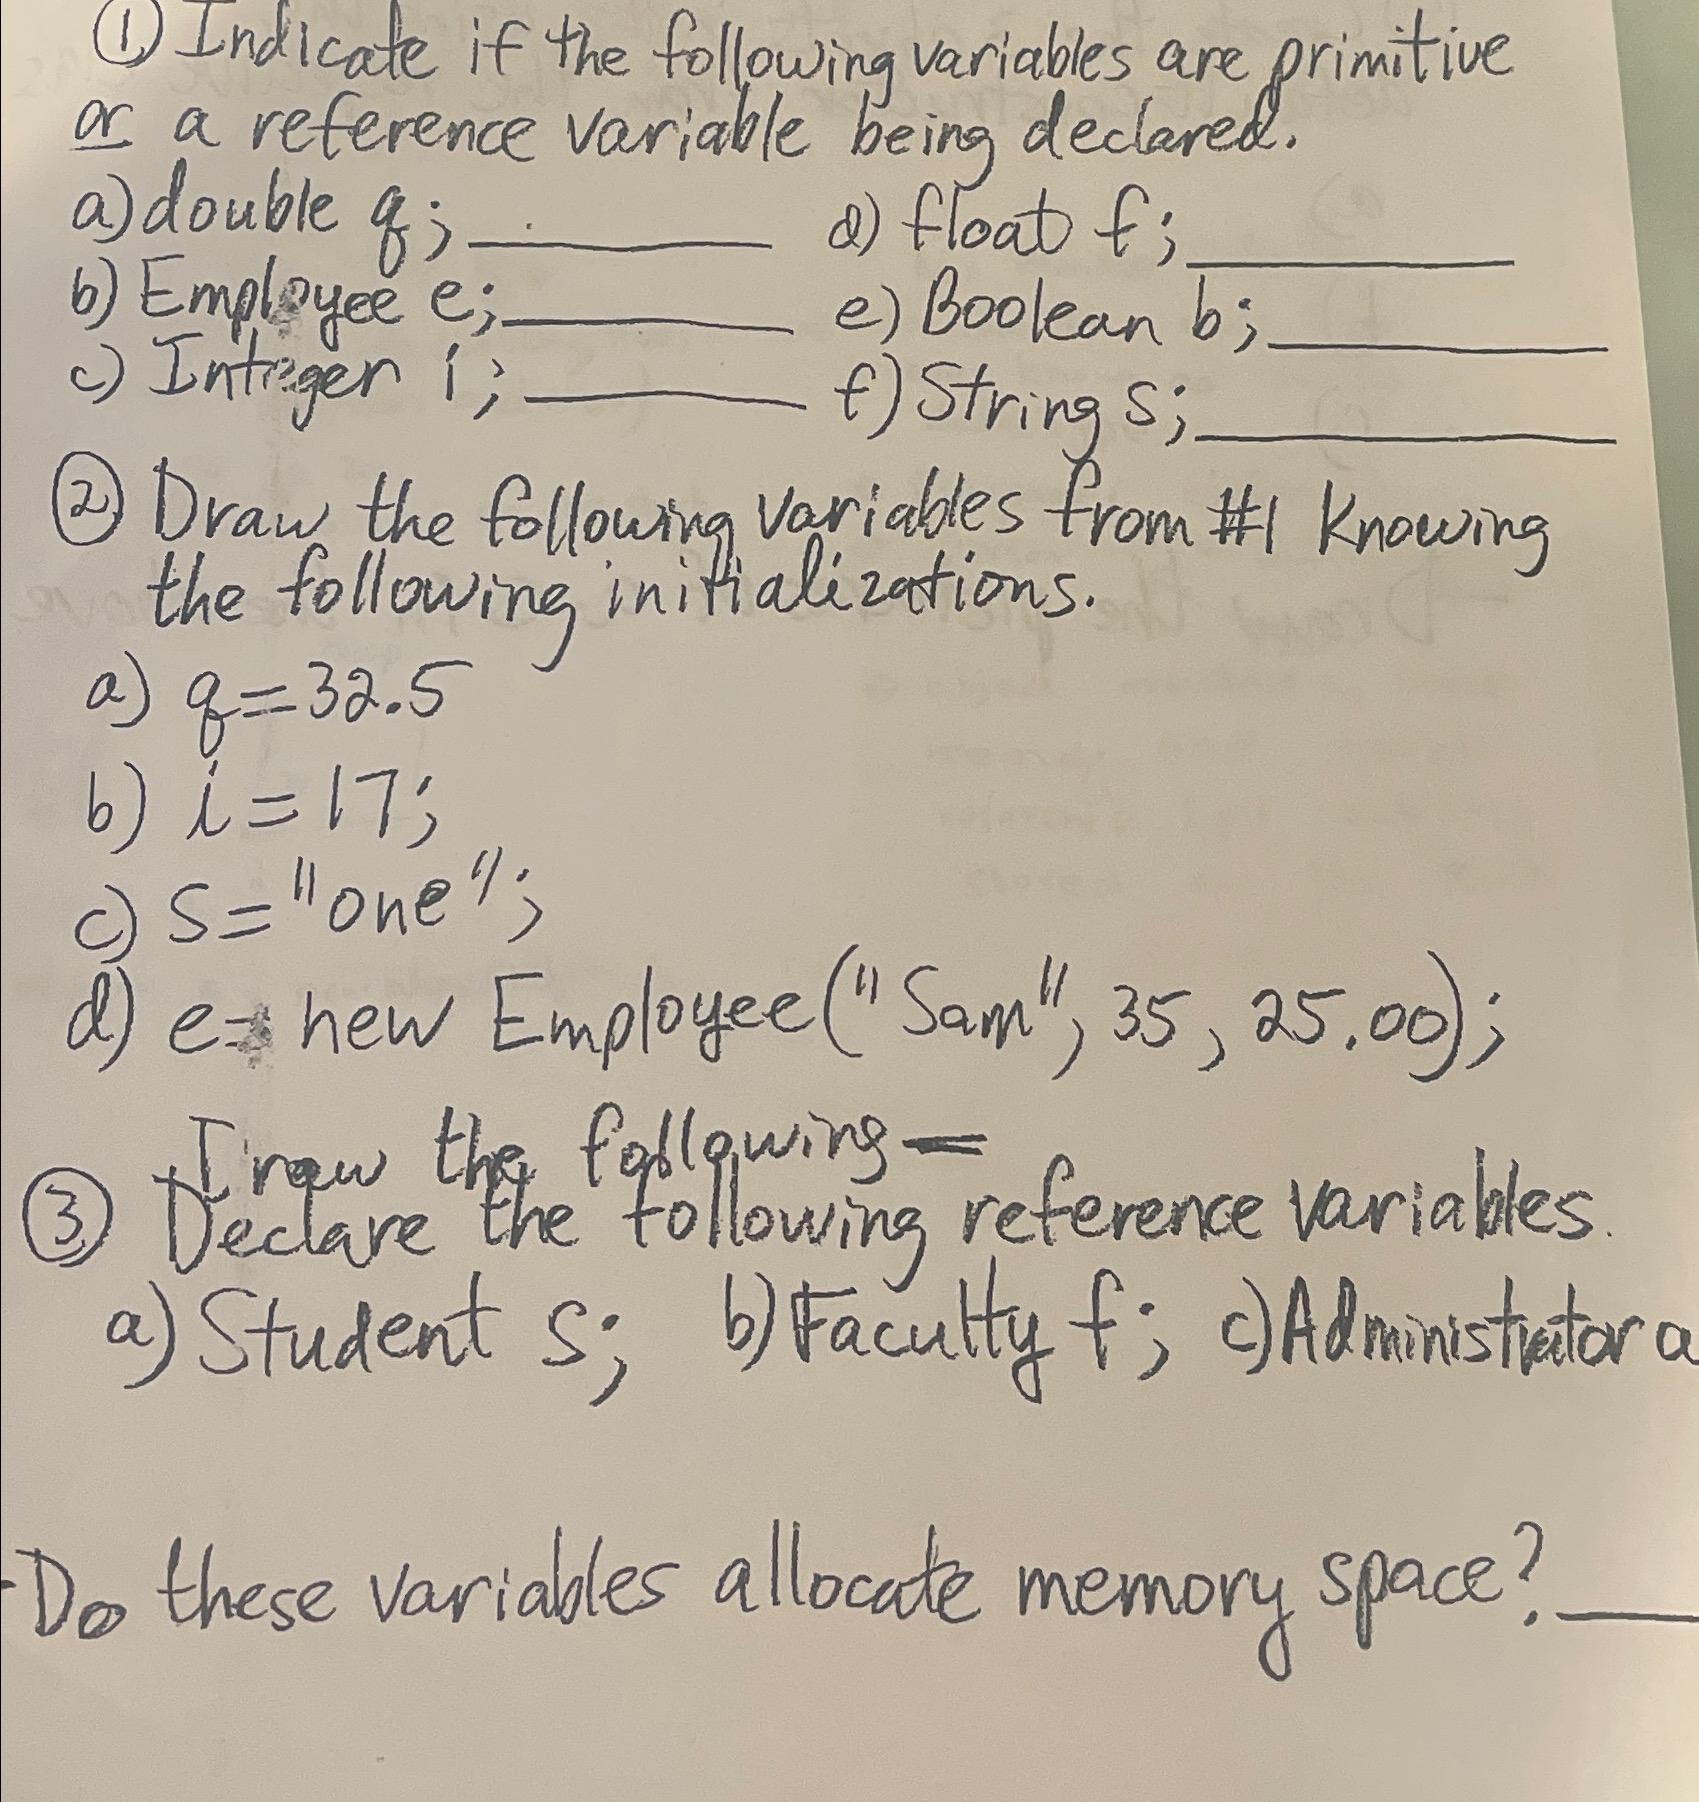 ① Indicate if the following variables are primitive
or a reference variable being declared.
a) double q; ________ d) float f; ________
b) Employee e; ________ e) Boolean b; ________
c) Integer i; ________ f) String s; ________
② Draw the following variables from #1 Knowing
the following initializations.
a) q=32.5
b) i=17;
c) S="one";
d) e= new Employee("Sam", 35, 25.00);
raw the following
③ Declare the following reference variables.
a) Student s; b) Faculty f; c) Administrator a
-Do these variables allocate memory space? ____